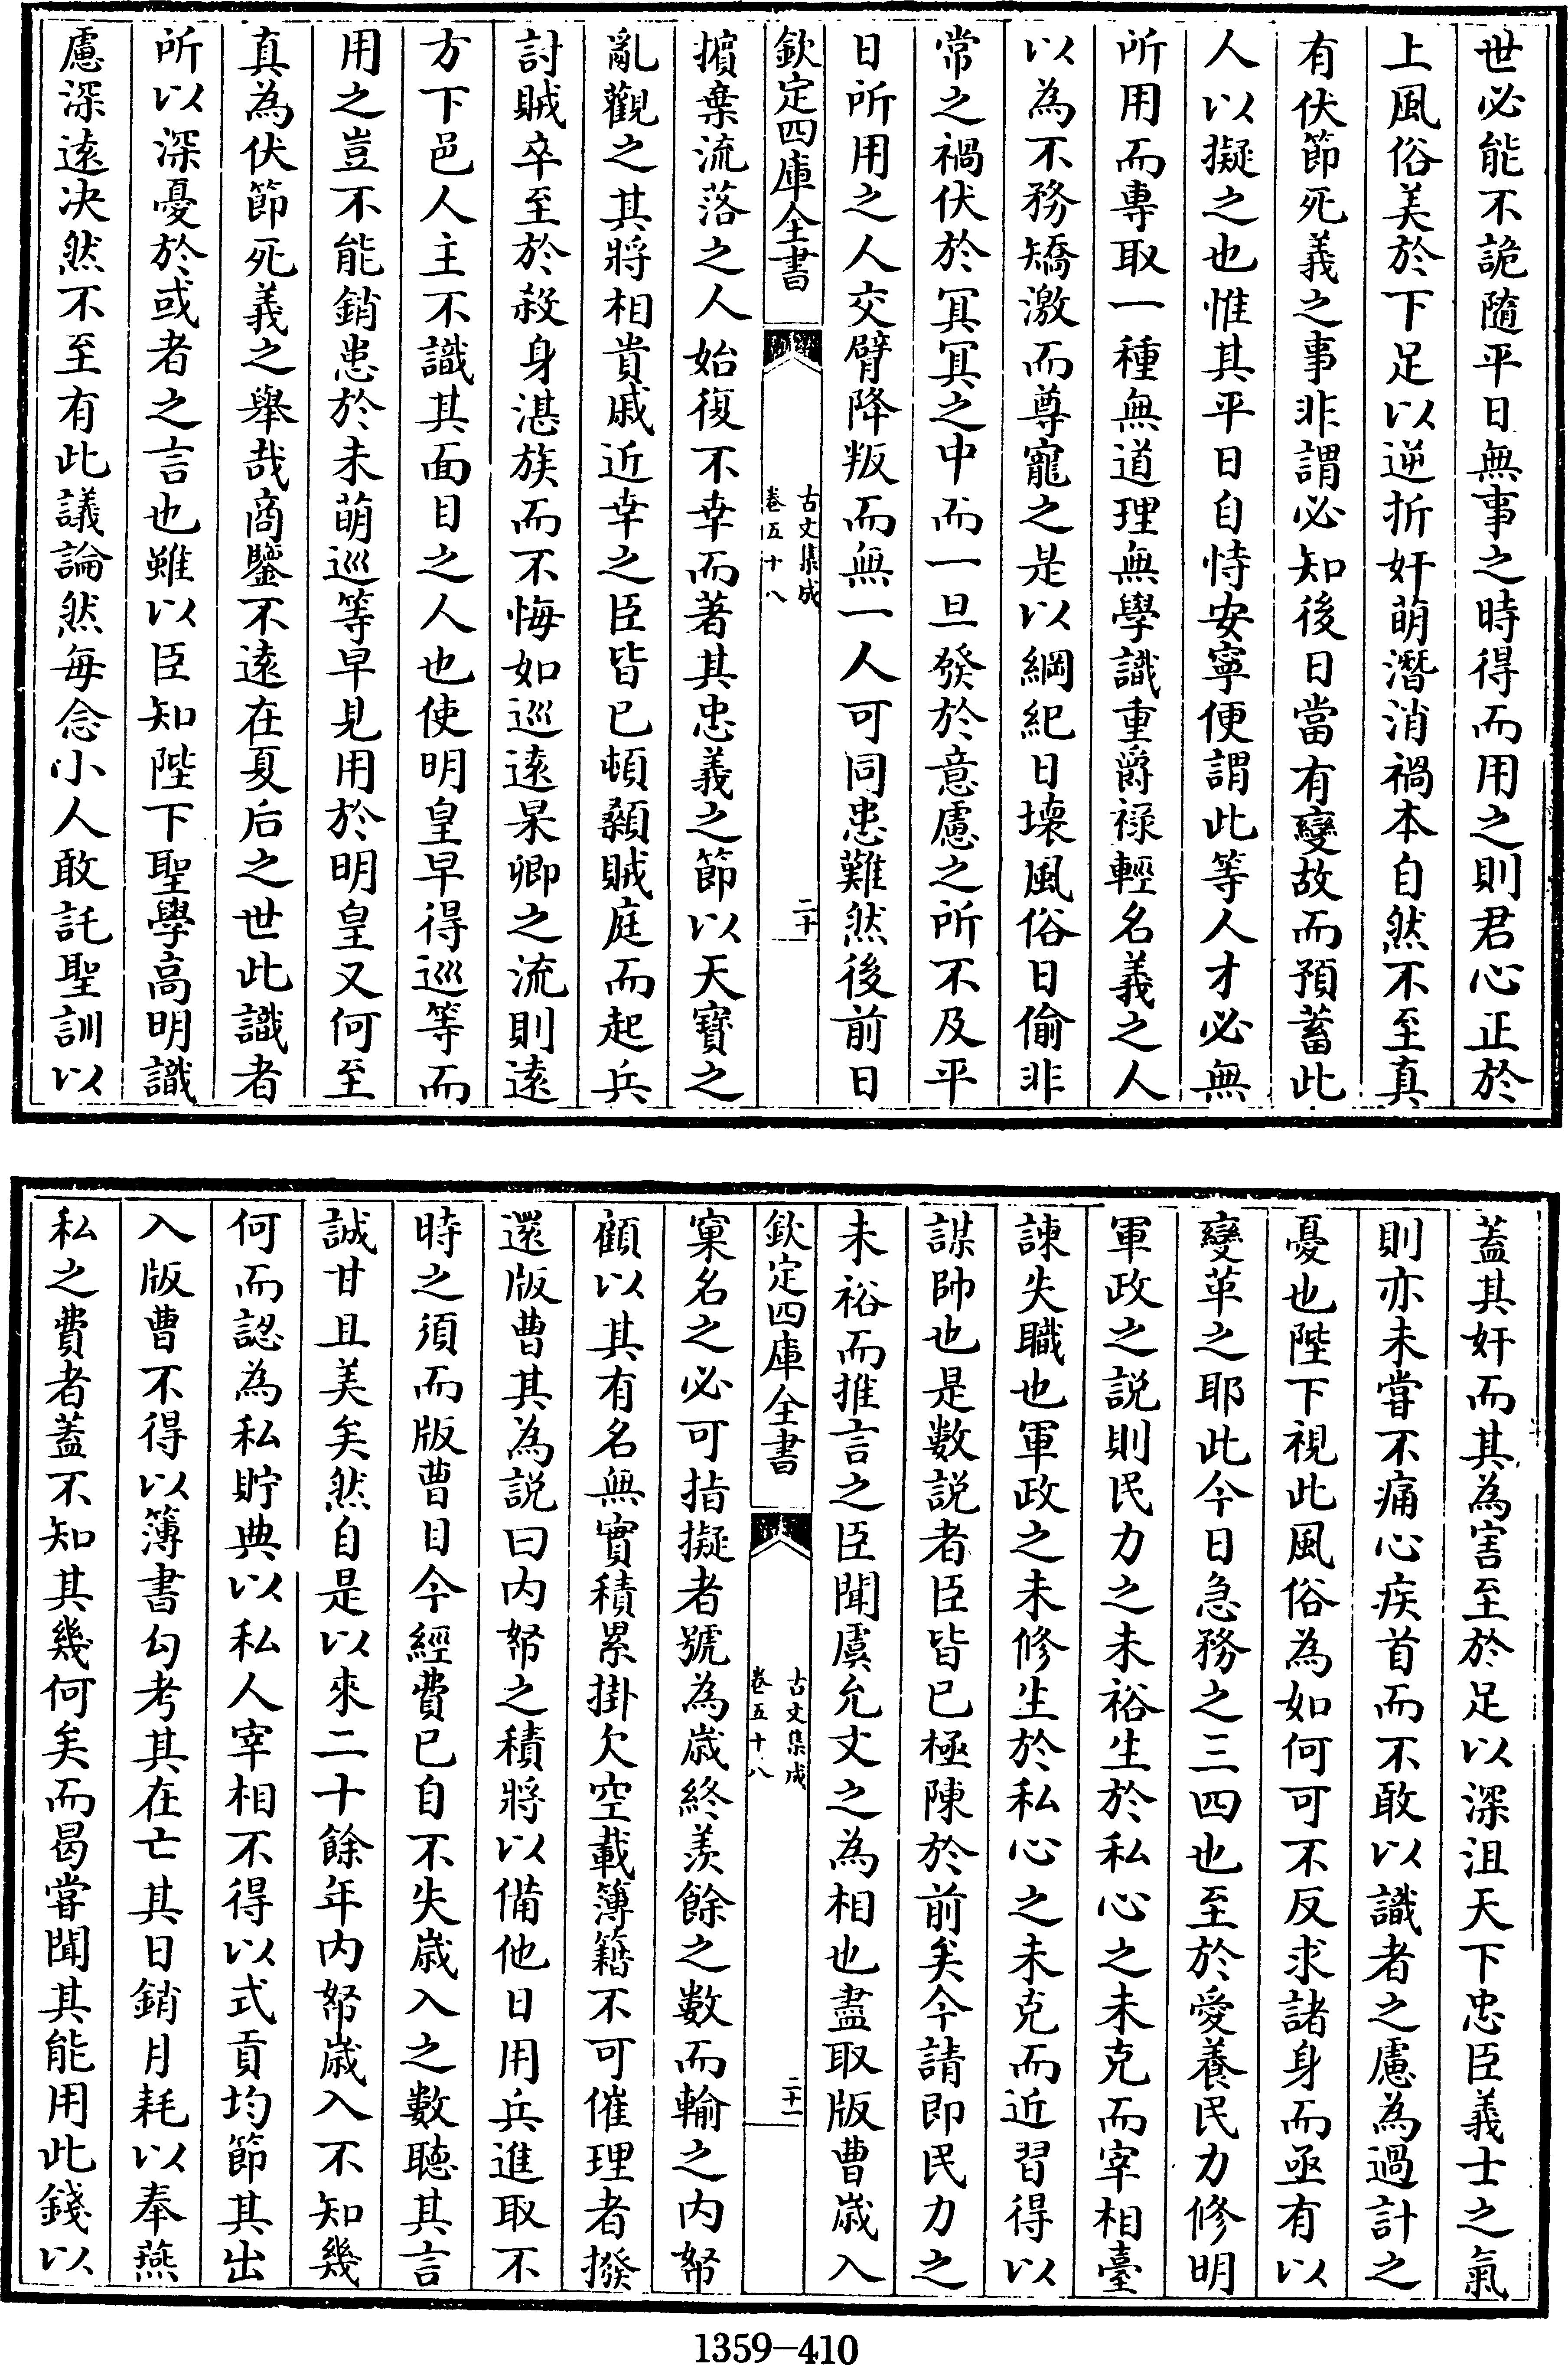 世必能不詭隨平日無事之時得而用之則君心正於
上風俗美於下足以逆折奸萌潛消禍本自然不至真
有伏節死義之事非謂必知後日當有變故而預蓄此
人以擬之也惟其平日自恃安寧便謂此等人才必無
所用而專取一種無道理無學識重爵祿輕名義之人
以為不務矯激而尊寵之是以綱紀日壞風俗日偷非
常之禍伏於冥冥之中而一旦發於意慮之所不及平
日所用之人交臂降叛而無一人可同患難然後前日
欽定四庫全書
古文集成
卷五十八
二十
擯棄流落之人始復不幸而著其忠義之節以天寶之
亂觀之其將相貴戚近幸之臣皆已頓顙賊庭而起兵
討賊卒至於殺身湛族而不悔如巡遠杲卿之流則遠
方下邑人主不識其面目之人也使明皇早得巡等而
用之豈不能銷患於未萌巡等早見用於明皇又何至
真為伏節死義之舉哉商鑒不遠在夏后之世此識者
所以深憂於或者之言也雖以臣知陛下聖學高明識
慮深遠決然不至有此議論然每念小人敢託聖訓以
蓋其奸而其為害至於足以深沮天下忠臣義士之氣
則亦未嘗不痛心疾首而不敢以識者之慮為過計之
憂也陛下視此風俗為如何可不反求諸身而亟有以
變革之耶此今日急務之三四也至於愛養民力修明
軍政之說則民力之未裕生於私心之未克而宰相臺
諫失職也軍政之未修生於私心之未克而近習得以
謀帥也是數說者臣皆已極陳於前矣今請即民力之
未裕而推言之臣聞虞允文之為相也盡取版曹歲入
欽定四庫全書
古文集成
卷五十八
二十一
窠名之必可指擬者號為歲終羨餘之數而輸之內帑
顧以其有名無實積累掛欠空載簿籍不可催理者撥
還版曹其為說曰內帑之積將以備他日用兵進取不
時之須而版曹目今經費已自不失歲入之數聽其言
誠甘且美矣然自是以來二十餘年內帑歲入不知幾
何而認為私貯典以私人宰相不得以式貢均節其出
入版曹不得以簿書勾考其在亡其日銷月耗以奉燕
私之費者蓋不知其幾何矣而曷嘗聞其能用此錢以
1359-410